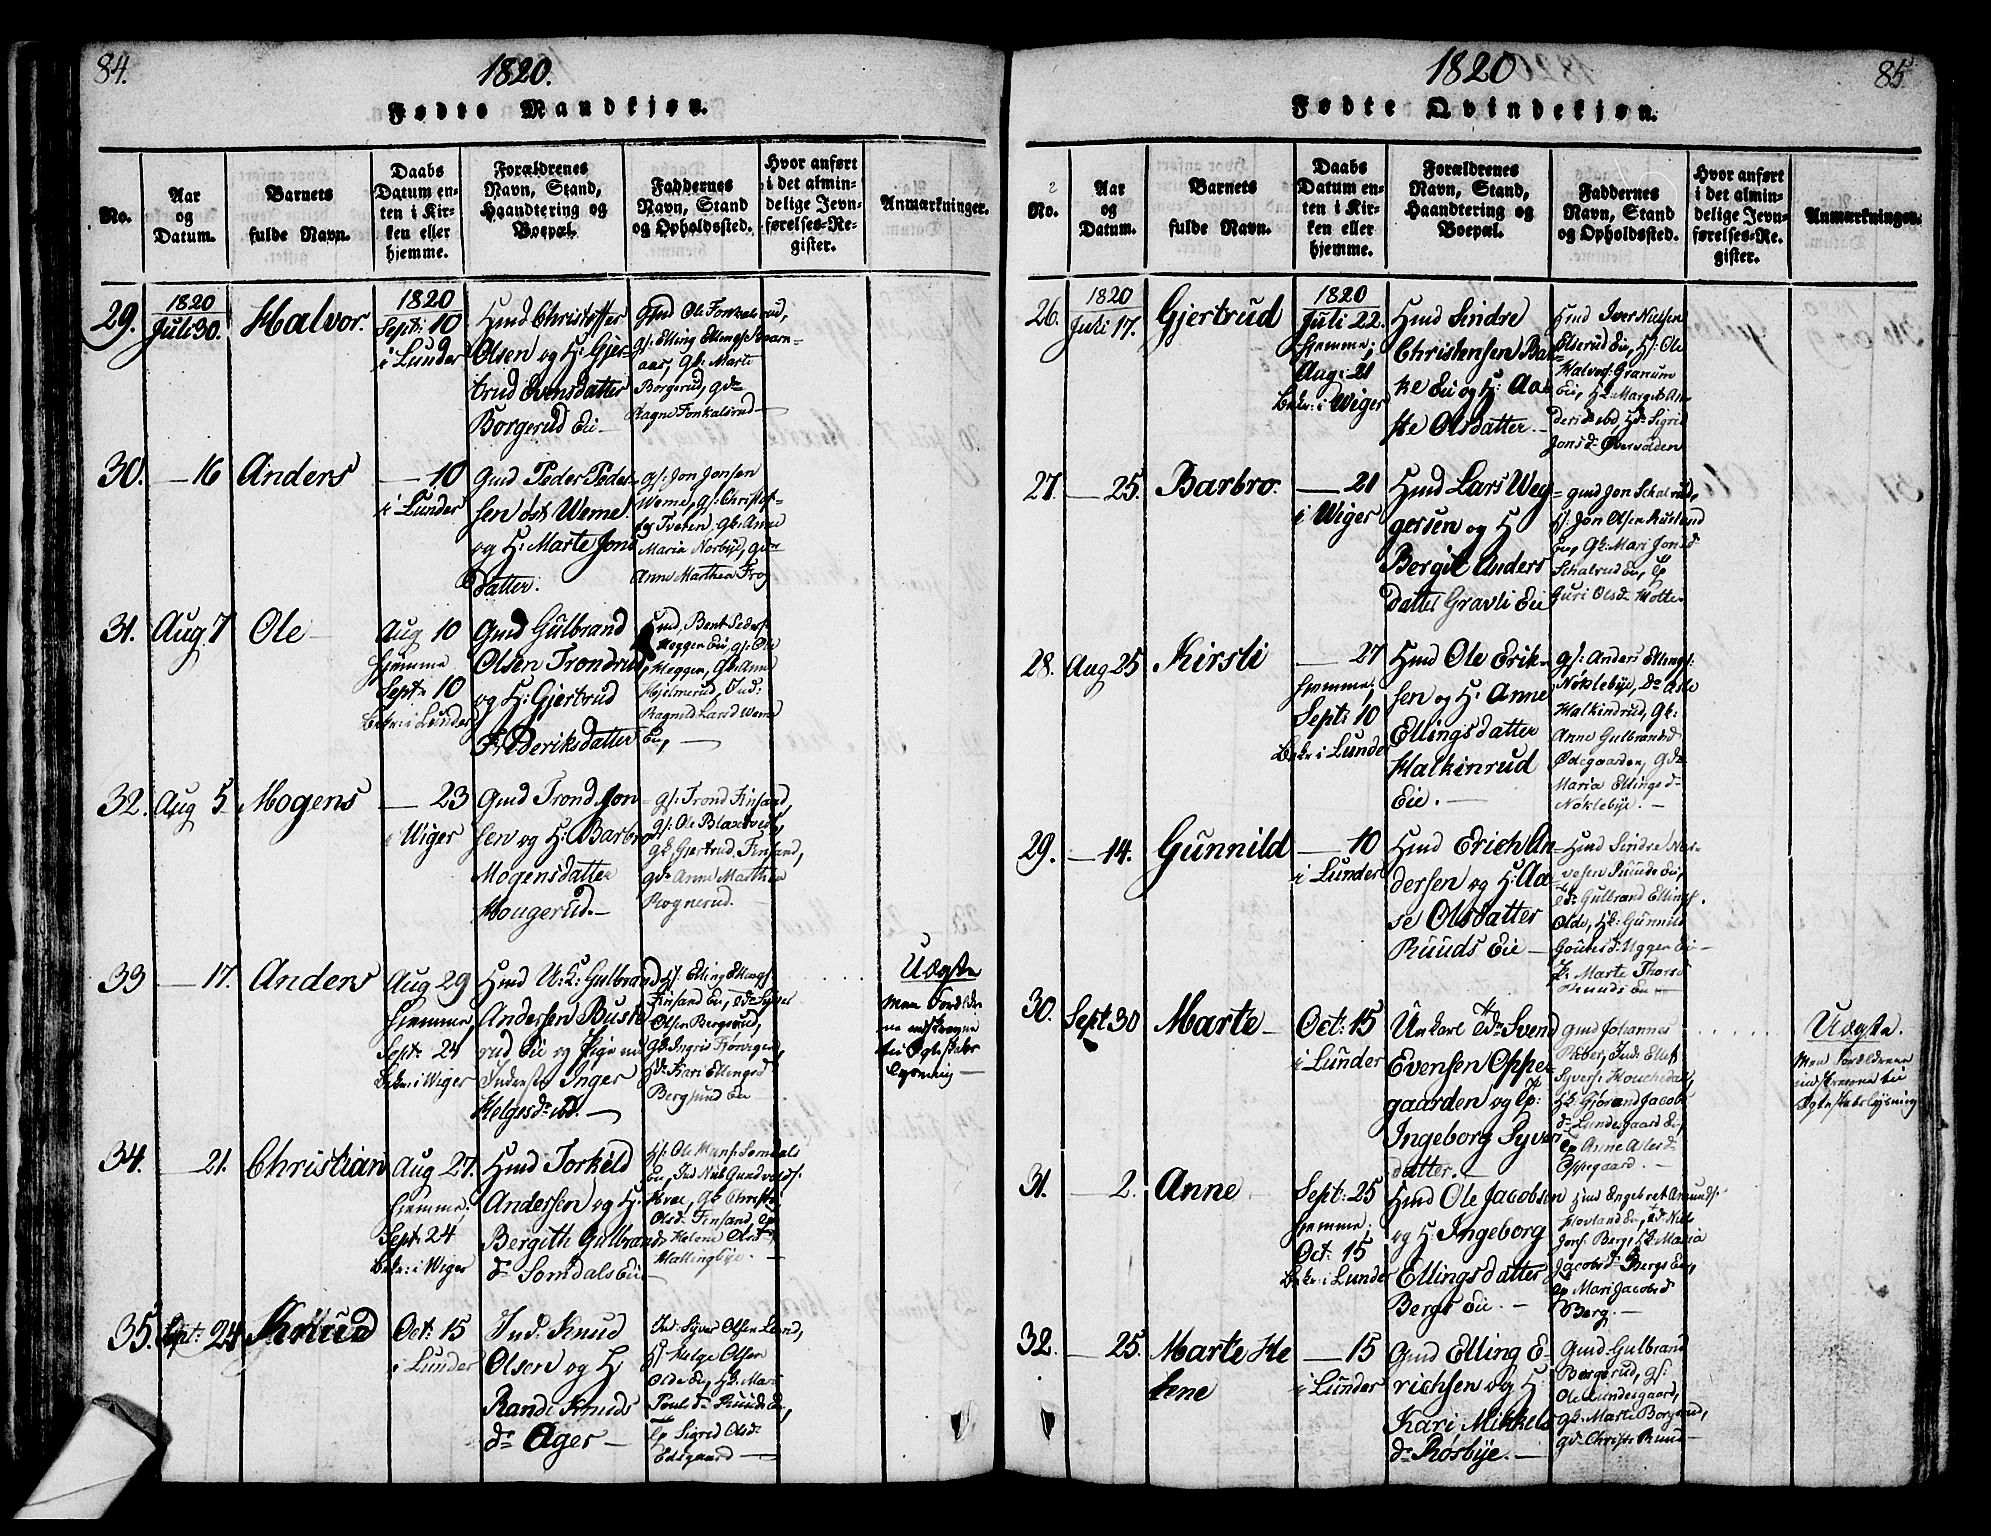 84.
1820.
Fødte Mandkjøn.
No.
Aar
og
Datum.
Barnets
fulde Navn.
Daabs
Datum en-
ten i Kir-
ken eller
hjemme.
Forældrenes
Navn, Stand,
Haandtering og
Boepæl.
Faddernes
Navn, Stand
og Opholdssted.
Hvor anført
i det almin-
delige Jevn-
førelses-Re-
gister.
Anmærkninger.
29.
1820
Juli 30.
Halvor.
1820
Sept: 10
i Lunder
Hmd Christoffer
Olsen og H: Gjer-
trud Evensdatter
Borgerud Eie
Gmd Ole Fonkalsrud,
gs: Elling Ellings:
aas, gk: Marte
Borgerud, gd:
Ragne Fonkalsrud
30.
— 16
Anders
— 10
i Lunder
Gmd Peder Peder-
sen øst Weme
og H: Marte Jons
datter.
gs: Jon Jonsen
Weme, gs: Christof-
fer Tveten, gk: Anne
Maria Norbye, gd:
Anne Marthea Frog
31.
Aug 7
Ole
Aug 10
hjemme
Sept: 10
Bekr: i Lunder
Gmd Gulbrand
Olsen Trondrud
og H: Gjertrud
Frideriksdatter
Hmd, Bent Peders:
Heggen Eie, gs: Ole
Heggen, Gk: Anne
Hjelmerud, Ind:
Ragnild Larsd Weme
Eie,
32.
Aug 5
Mogens
— 23
i Wiger
Gmd Trond Jon-
sen og H: Barbro
Mogensdatter
Hougerud.
gs: Trond Finsand,
gs: Ole
gk: Gjertrud Finsand,
gd: Anne Marthea
Rognerud.
33
— 17.
Anders
Aug 29
hjemme,
Sept: 24
Bekr: i Wiger
Hmd U: K: Gulbrand
Andersen Buske-
rud Eie og Pige
Inderste Inger
Helgesd: ibd.
Hs: Elling Ellings:
Finsand Eie,
Olsen Bergsund,
Gk: Ingris
Hd: Kari Ellingsd
Bergsund Eie
Uægte
Men Forældre-
ne indtegnede
til Ægteskabs
Lysning
34.
— 21.
Christian
Aug 27.
hjemme.
Sept: 24
Bekr: i Wiger
Hmd Torkild
Andersen og H:
Bergith Gulbrands
d: Somdals Eie
Hs: Ole Hans: Somdals
Eie, Ind Nils Gundvalds:
gk: Christi
Olsd: Finsand,
Helene Olsd:
Hallingbye.
35.
Sept: 24
Knud
Oct: 15
i Lunder
Ind: Knud
Olsen og H
Randi Knuds
d: Ager
Ind: Syver Olsen Lend,
Hs Helge Olsen
Olde Eie, Hk: Mari
Pouls d: Ruuds Eie,
Ep Sigrid Olsd:
Edsgaard
85.
1820
Fødte Qvindekjøn.
No.
Aar
og
Datum.
Barnets
fulde Navn.
Daabs
Datum en-
ten i Kir-
ken eller
hjemme.
Forældrenes
Navn, Stand,
Haandtering og
Boepæl.
Faddernes
Navn, Stand
og Opholdssted.
Hvor anført
i det almin-
delige Jevn-
førelses-Re-
gister.
Anmærkninger.
26.
1820
Juli 17.
Gjertrud
1820
Juli 22.
hjemme,
Aug: 21
Bekr: i Wiger
Hmd Sindre
Christensen Bak-
ke Eie og H: Aa-
ste Olsdatter.
Hmd Iver Nielsen
Elserud Eie, Hs: Ole
Halvors: Granum
Eie, Hk: Margit An-
ders: ibd, Hd: Sigrid
Jonsd:
27.
— 25.
Barbro.
— 21
i Wiger
Hmd Lars Wey-
gersen og H
Bergit Anders
datter Gravli Eie
gmd Jon Schalrud,
Hs: Jon Olsen Rusland
Eie, Gk: Mari Jonsd
Schalrud Eie, Ep
Guri Olsd:
28.
Aug 25
Kirsti
— 27
hjemme,
Sept: 10
Bekr: i Lunder
Hmd Ole Erik-
sen og H: Anne
Ellingsdatter
Halkinrud
Eie.
gs: Anders Ellings:
Nøklebye, Do: Asle
Halkindrud, gk:
Anne Gulbrandsd
Ødegaarden, gd:
Maria Ellingsd:
Nøklebye.
29.
— 14.
Gunnild
— 10
i Lunder
Hmd Erich An-
dersen og H: Aa-
se Olsdatter
Ruuds Eie
Hmd Sindre
Ruuds Eie,
Gulbrand Ellings:
Olde, Hk: Gunnild
Goutesd: Uggen Eie
Ep: Marte Thorsd:
Ruuds Eie
30.
Sept 30
Marte
Oct: 15
i Lunder
Unkarl Svend
Evensen Oppe-
gaarden og Ep:
Ingeborg Syvers
datter.
gmd Johannes
Ind: Ellef
Syvers:
Hk: Gjørand Jacobs
d: Lundesgaard Eie,
Ep Anne
Oppegaard.
Uægte.
Men Forældrene
indtegnede til
Ægteskabslysning
31.
— 2.
Anne.
Sept: 25
hjemme.
Oct: 15
Bekr: i Lunder
Hmd Ole Jacobsen
og H: Ingeborg
Ellingsdatter
Bergs Eie.
Hmd Engebret Amunds:
Hovland Eie, Niels
Jons: Berg, Hk: Maria
Jacobsd: Bergs Eie,
Ep Mari Jacobsd
Berg.
32.
— 25.
Marte He
lene
— 15
i Lunder
Gmd Elling E-
richsen og H:
Kari Mikkels
d: Rosbye.
Gmd Gulbrand
Borgerud, gs:
Ole Lundesgaard,
gk: Marte Borgerud,
gd: Christi Ruud